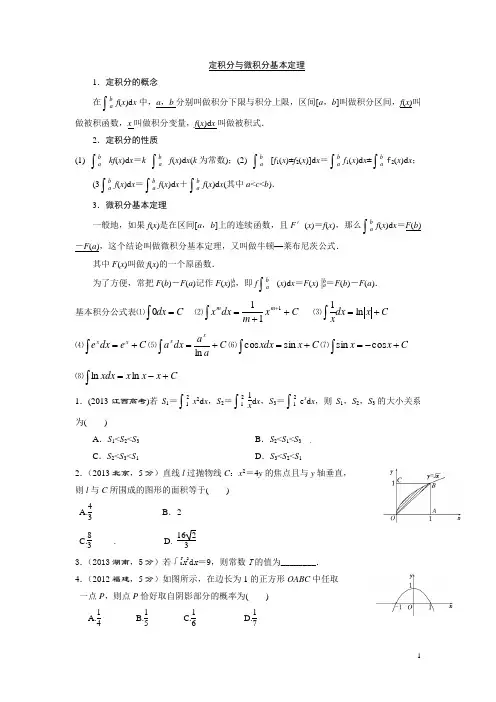 定积分与微积分基本定理
1．定积分的概念
在∫_a^b f(x)dx 中，a，b 分别叫做积分下限与积分上限，区间[a，b]叫做积分区间，f(x)叫
做被积函数，x 叫做积分变量，f(x)dx 叫做被积式．
2．定积分的性质
(1) ∫_a^b kf(x)dx＝k ∫_a^b f(x)dx(k 为常数)；(2) ∫_a^b [f₁(x)±f₂(x)]dx＝∫_a^b f₁(x)dx±∫_a^b f₂(x)dx；
(3∫_a^b f(x)dx＝∫_a^b f(x)dx＋∫_a^b f(x)dx(其中 a<c<b)．
3．微积分基本定理
一般地，如果 f(x)是在区间[a，b]上的连续函数，且 F′(x)＝f(x)，那么∫_a^b f(x)dx＝F(b)
－F(a)，这个结论叫做微积分基本定理，又叫做牛顿—莱布尼茨公式．
其中 F(x)叫做 f(x)的一个原函数．
为了方便，常把 F(b)－F(a)记作 F(x)|_a^b，即 f∫_a^b (x)dx＝F(x) |_a^b＝F(b)－F(a)．
基本积分公式表⑴∫0dx = C ⑵∫x^m dx = 1/(m+1) x^(m+1) + C ⑶∫1/x dx = ln|x| + C
⑷∫e^x dx = e^x + C⑸∫a^x dx = a^x/ln a + C⑹∫cos xdx = sin x + C⑺∫sin x = −cos x + C
⑻∫ln xdx = x ln x − x + C
1．(2013·江西高考)若 S₁＝∫_1^2 x²dx，S₂＝∫_1^2 1/x dx，S₃＝∫_1^2 e^x dx，则 S₁，S₂，S₃的大小关系
为( )
A．S₁<S₂<S₃ B．S₂<S₁<S₃ .
C．S₂<S₃<S₁ D．S₃<S₂<S₁
2．（2013·北京，5分）直线 l 过抛物线 C：x²＝4y 的焦点且与 y 轴垂直，
则 l 与 C 所围成的图形的面积等于( )
A.4/3 B．2
C.8/3 . D. 16√2/3
3．（2013·湖南，5分）若∫_0^T x²dx＝9，则常数 T 的值为________．
4．（2012·福建，5分）如图所示，在边长为1的正方形 OABC 中任取
一点 P，则点 P 恰好取自阴影部分的概率为( )
A.1/4 B.1/5 C.1/6 D.1/7
y
C
1
y=√x
B
A
O
1
x
y
1
−1
O
1
x
1